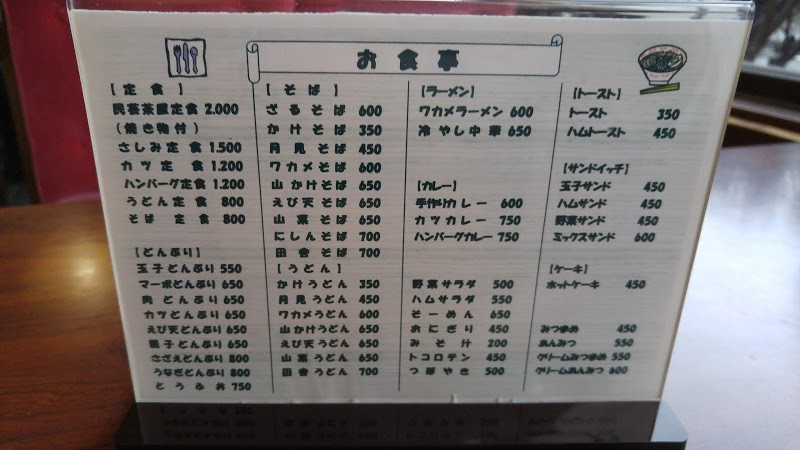 お食事
【定食】
民芸茶屋定食 2.000
(焼き物付)
さしみ定食 1.500
カツ定食 1.200
ハンバーグ定食 1.200
うどん定食 800
そば定食 800
【どんぶり】
玉子どんぶり 550
マーボどんぶり 650
肉どんぶり 650
カツどんぶり 650
えび天どんぶり 650
親子どんぶり 650
さざえどんぶり 800
うなぎどんぶり 800
とうふ丼 750
【そば】
ざるそば 600
かけそば 350
月見そば 450
ワカメそば 600
山かけそば 650
えび天そば 650
山菜そば 650
にしんそば 700
田舎そば 700
【うどん】
かけうどん 350
月見うどん 450
ワカメうどん 600
山かけうどん 650
えび天うどん 650
山菜うどん 650
田舎うどん 700
【ラーメン】
ワカメラーメン 600
冷やし中華 650
【カレー】
手作りカレー 600
カツカレー 750
ハンバーグカレー 750
野菜サラダ 500
ハムサラダ 550
そーめん 650
おにぎり 450
みそ汁 200
トコロテン 450
つぼやき 500
【トースト】
トースト 350
ハムトースト 450
【サンドイッチ】
玉子サンド 450
ハムサンド 450
野菜サンド 450
ミックスサンド 600
【ケーキ】
ホットケーキ 450
みつまめ 450
あんみつ 550
クリームみつまめ 550
クリームあんみつ 600